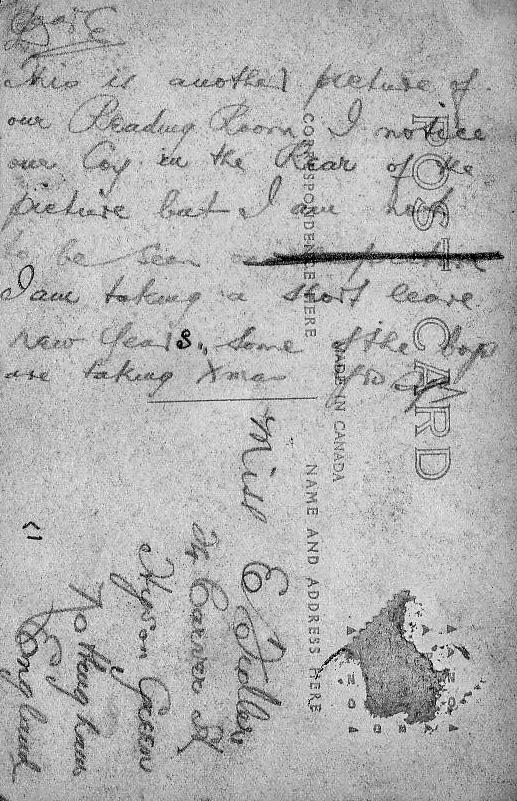 This is another picture of
our Reading Room I notice
our Coy in the Rear of the
picture but I am not
to be seen
I am taking a short leave
new Years. Some of the boys
are taking Xmas
POST CARD
CORRESPONDENCE HERE
MADE IN CANADA
NAME AND ADDRESS HERE
Miss E
Carver St
Hyson Green
Nottingham
England